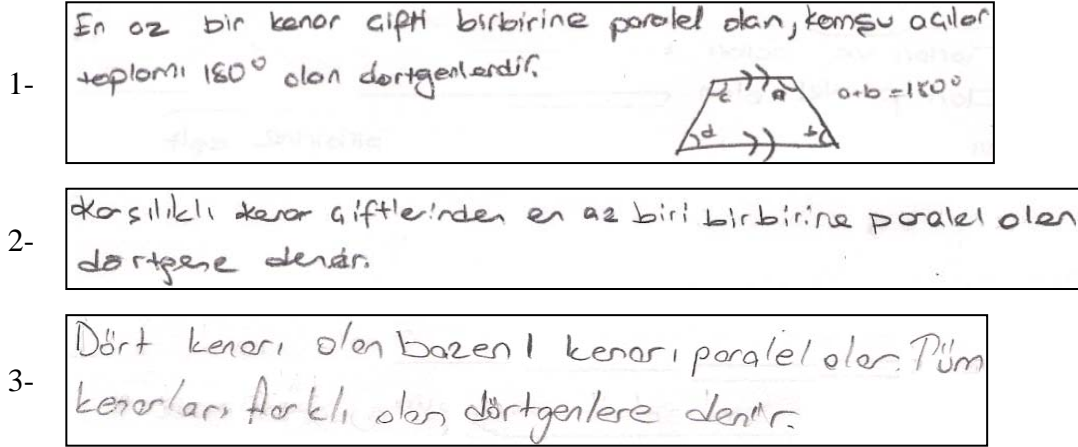 1-
En az bir kenar çifti birbirine paralel olan, komşu açılar
toplamı 180° olan dörtgenlerdir.
c a a+b=180°
d b
2-
Karşılıklı kenar çiftlerinden en az biri birbirine paralel olan
dörtgene denir.
3-
Dört kenarı olan bazen 1 kenarı paralel olan. Tüm
kenarları farklı olan dörtgenlere denir.